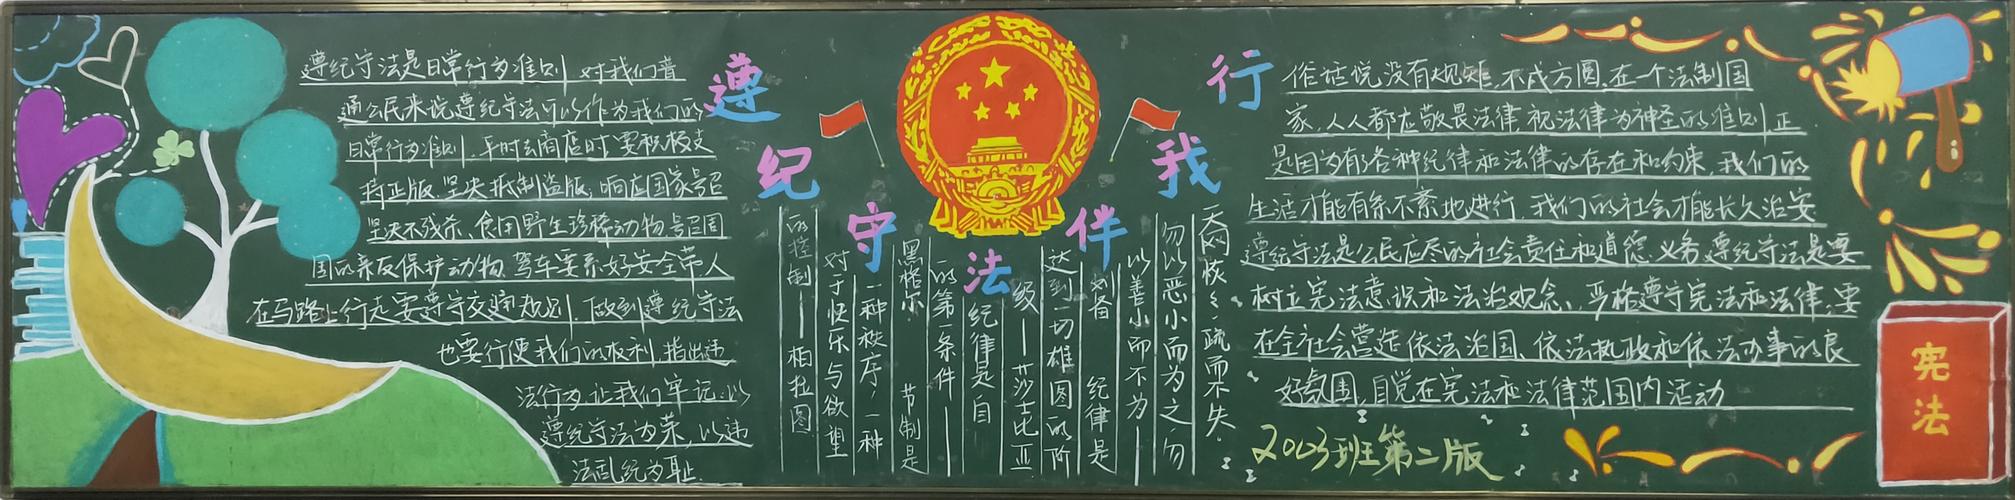 遵纪守法伴我行
遵纪守法是日常行为准则 对我们普
通公民来说遵纪守法可以作为我们的
日常行为准则.平时去商店时要积极支
持正版.坚决抵制盗版;响应国家号召
坚决不残杀、食用野生珍稀动物.号召周
围的亲友保护动物.驾车要系好安全带人
在马路上行走要遵守交通规则.做到遵纪守法
也要行使我们的权利.指出违
法行为.让我们牢记:以
遵纪守法为荣,以违
法乱纪为耻.
天网恢恢,疏而不失.
勿以恶小而为之勿
以善小而不为——
刘备 纪律是
达到一切雄图的阶
级——莎士比亚
纪律是自
的第一条件——
黑格尔 节制是
一种秩序,一种
对于快乐与欲望
的控制——柏拉图
俗话说没有规矩.不成方圆.在一个法制国
家,人人都应敬畏法律,视法律为神圣的准则.正
是因为有各种纪律和法律的存在和约束,我们的
生活才能有条不紊地进行.我们的社会才能长久治安
遵纪守法是公民应尽的社会责任和道德义务.遵纪守法是要
树立宪法意识和法治观念、严格遵守宪法和法律;要
在全社会营造依法治国、依法执政和依法办事的良
好氛围,自觉在宪法和法律范围内活动
2003班第二版
宪法